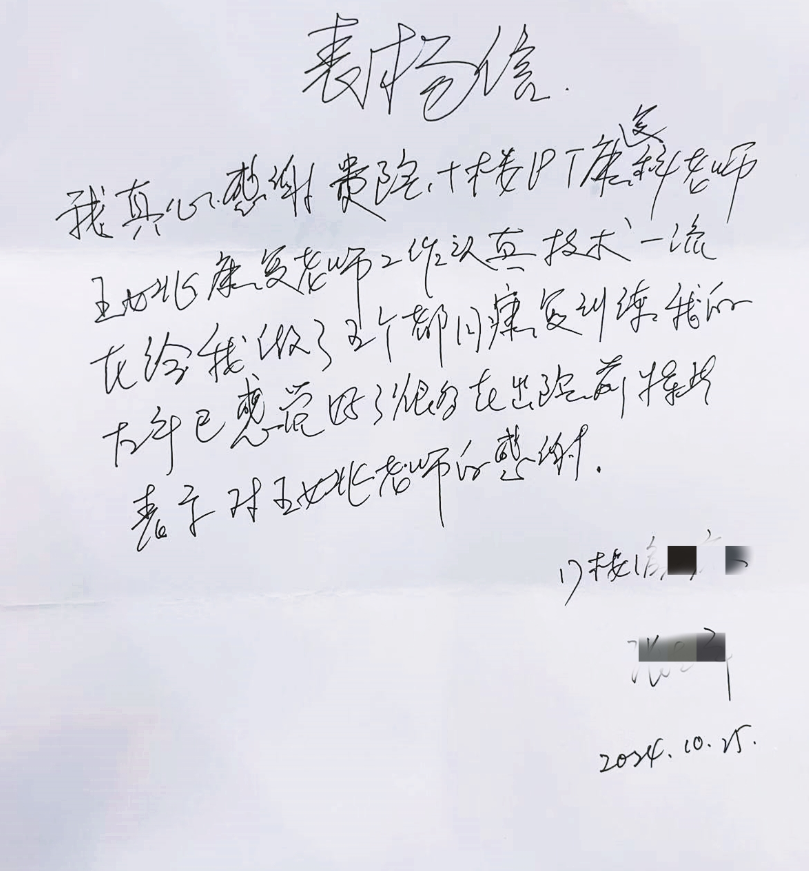 表扬信.
我真心感谢贵院十楼PT康复科老师
王姚康复老师工作认真技术一流
在给我做了五个部门康复训练我的
右手已感觉好了很多在出院前特此
表示对王姚老师的感谢.
17楼
2024.10.25.